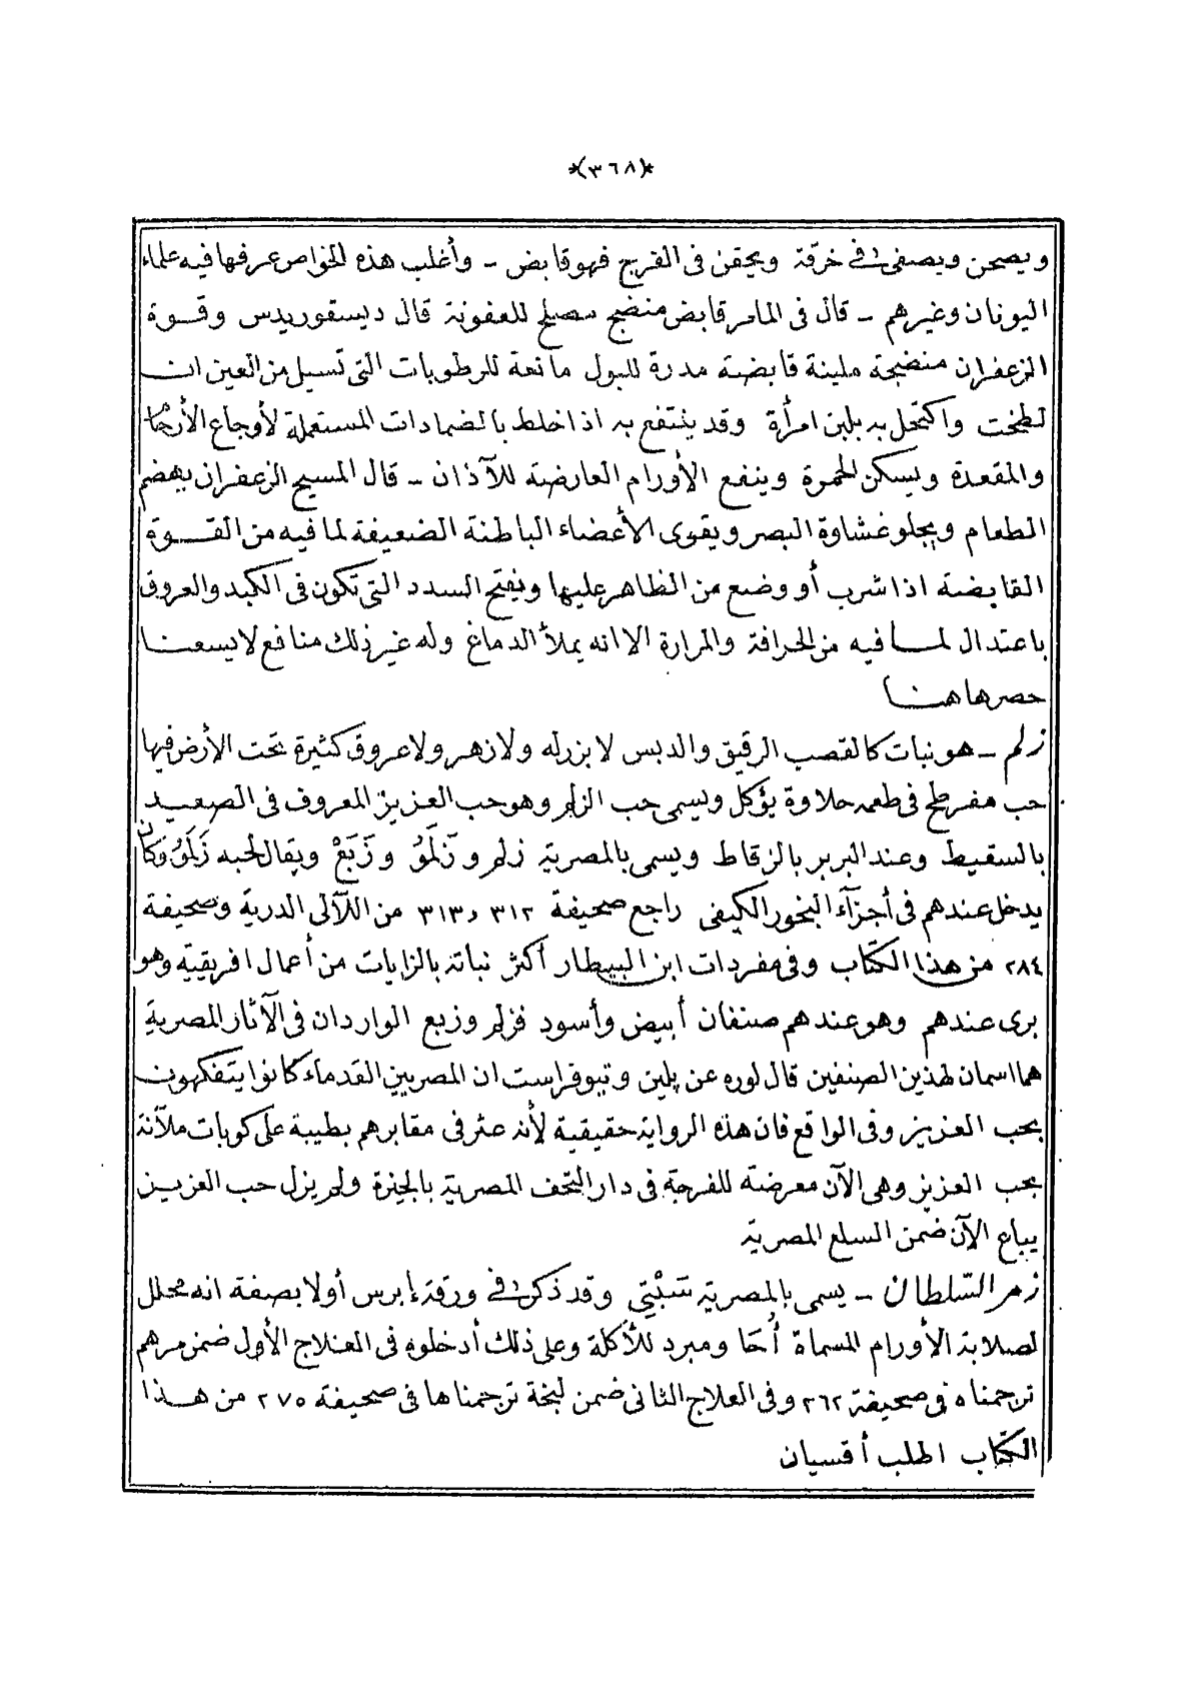 *(٣٦٨)*
ويصحن ويصفى فى خرقة ويحقن فى الفرج فهو قابض – وأغلب هذه الخواص عرفها فيه علماء
اليونان وغيرهم – قال فى المامر قابض منضج مصلح للعفونة قال ديسقوريدس وقوة
الزعفران منضجة ملينة قابضة مدرة للبول مانعة للرطوبات التى تسيل من العين ان
لطخت واكتحل به بلبن امرأة وقد ينتفع به اذا خلط بالضمادات المستعملة لأوجاع الأرحام
والمقعدة ويسكن الحمرة وينفع الأورام العارضة للآذان – قال المسيح الزعفران يهضم
الطعام ويجلو غشاوة البصر ويقوى الأعضاء الباطنة الضعيفة لما فيه من القوة
القابضة اذا شرب أو وضع من الظاهر عليها ويفتح السدد التى تكون فى الكبد والعروق
باعتدال لما فيه من الحرافة والمرارة الا انه يملأ الدماغ وله غير ذلك منافع لا يسعنا
حصرها هنا
زلم – هو نبات كالقصب الرقيق والدبس لا بزر له ولا زهر ولا عروق كثيرة تحت الأرض فيها
حب مفرطح فى طعمه حلاوة يؤكل ويسمى حب الزلم وهو حب العزيز المعروف فى الصعيد
بالسقيط وعند البربر بالزقاط ويسمى بالمصرية زلم وزَلَمُو وزَبَعْ ويقال لحبه زَلَمُو وكان
يدخل عندهم فى أجزآء البخور الكيفى راجع صحيفة ٣١٢ و ٣١٣ من اللآلى الدرية وصحيفة
٢٨٤ من هذا الكتاب وفى مفردات ابن البيطار أكثر نباتة بالزايات من أعمال افريقية وهو
برى عندهم وهو عندهم صنفان أبيض وأسود فزلم وزبع الواردان فى الآثار المصرية
هما اسمان لهذين الصنفين قال لوره عن پلين وتيوفراست ان المصريين القدماء كانوا يتفكهون
بحب العزيز وفى الواقع فان هذه الرواية حقيقية لأنه عثر فى مقابرهم بطيبة على كوبات ملآنة
بحب العزيز وهى الآن معرضة للفرجة فى دار التحف المصرية بالجيزة ولم يزل حب العزيز
يباع الآن ضمن السلع المصرية
زهر السّلطان – يسمى بالمصرية شَبْتِي وقد ذكر فى ورقة إبرس أولا بصفة انه محلل
لصلابة الأورام المسماة أُحَا ومبرد للأكلة وعلى ذلك أدخلوه فى العلاج الأول ضمن مرهم
ترجمناه فى صحيفة ٢٦٢ وفى العلاج الثانى ضمن لبخة ترجمناها فى صحيفة ٢٧٥ من هذا
الكتاب اطلب أقسيان